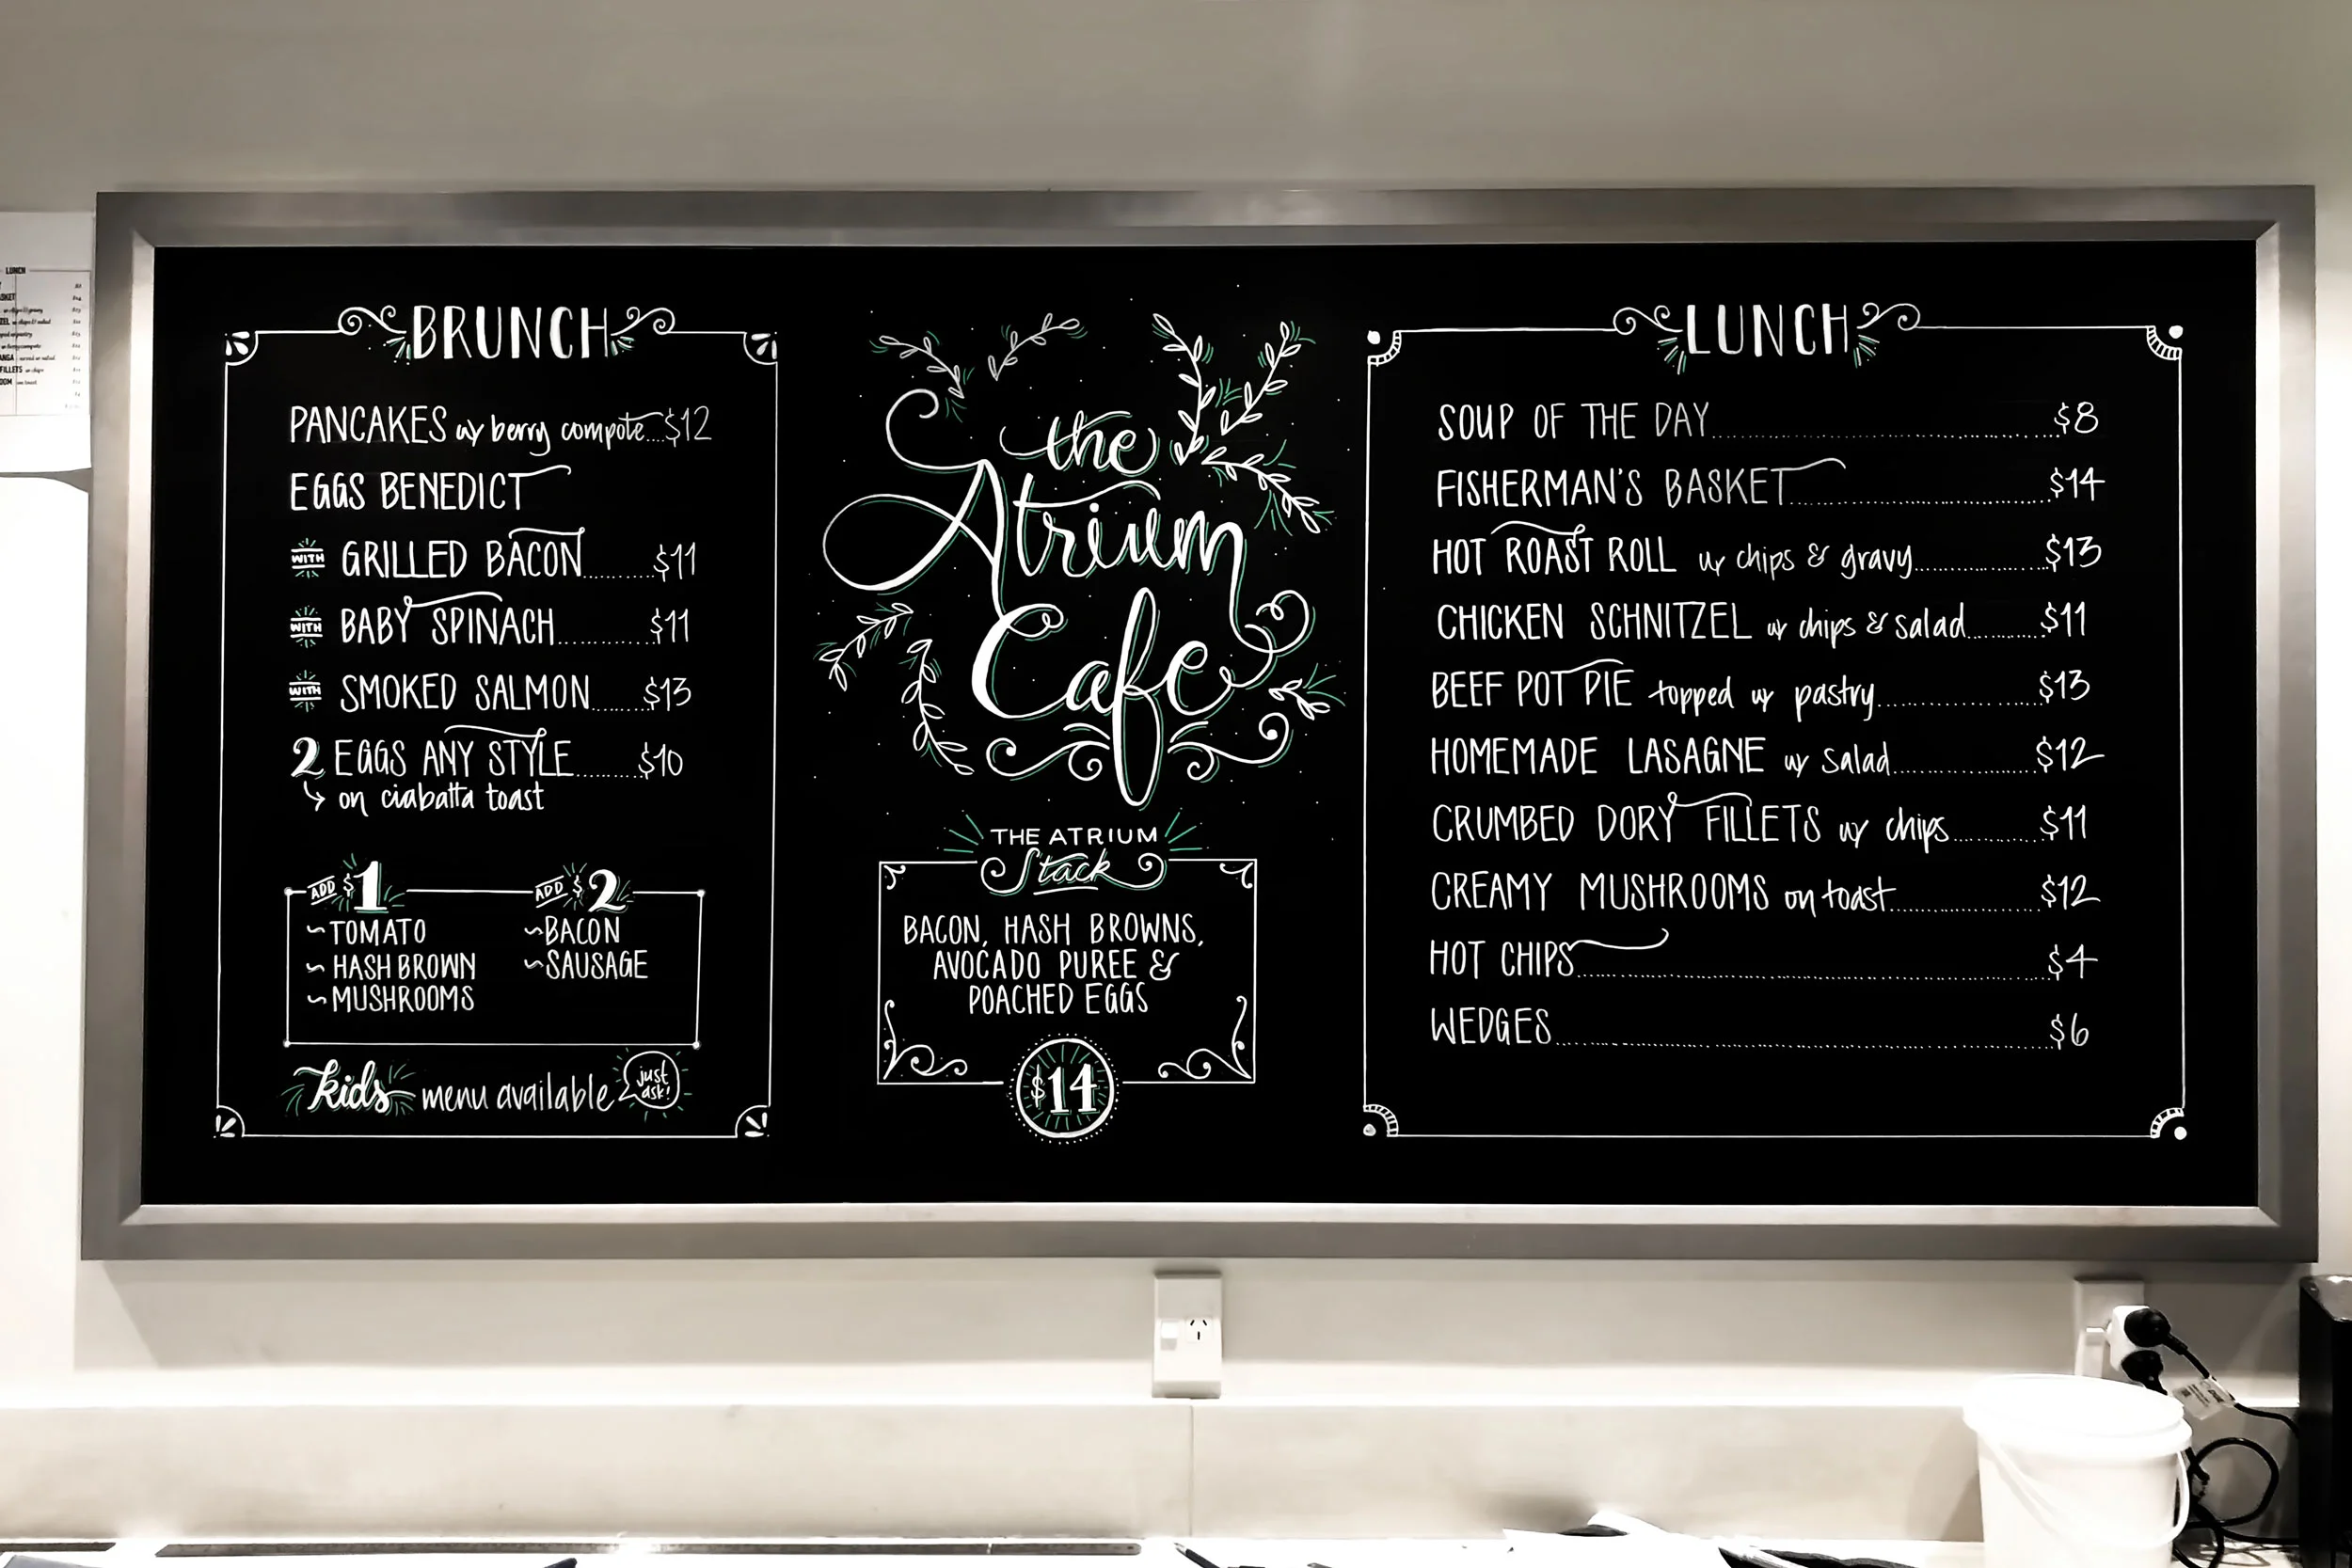 BRUNCH
PANCAKES w/ berry compote....$12
EGGS BENEDICT
WITH GRILLED BACON..........$11
WITH BABY SPINACH............$11
WITH SMOKED SALMON......$13
2 EGGS ANY STYLE.........$10
on ciabatta toast
ADD $1
~TOMATO
~HASH BROWN
~MUSHROOMS
ADD $2
~BACON
~SAUSAGE
kids menu available just
ask!
the
Atrium
Cafe
THE ATRIUM
Stack
BACON, HASH BROWNS,
AVOCADO PUREE &
POACHED EGGS
$14
LUNCH
SOUP OF THE DAY..........$8
FISHERMAN'S BASKET..........$14
HOT ROAST ROLL w/ chips & gravy..........$13
CHICKEN SCHNITZEL w/ chips & salad..........$11
BEEF POT PIE topped w/ pastry..........$13
HOMEMADE LASAGNE w/ salad..........$12
CRUMBED DORY FILLETS w/ chips..........$11
CREAMY MUSHROOMS on toast..........$12
HOT CHIPS..........$4
WEDGES..........$6
LUNCH
FILLETS